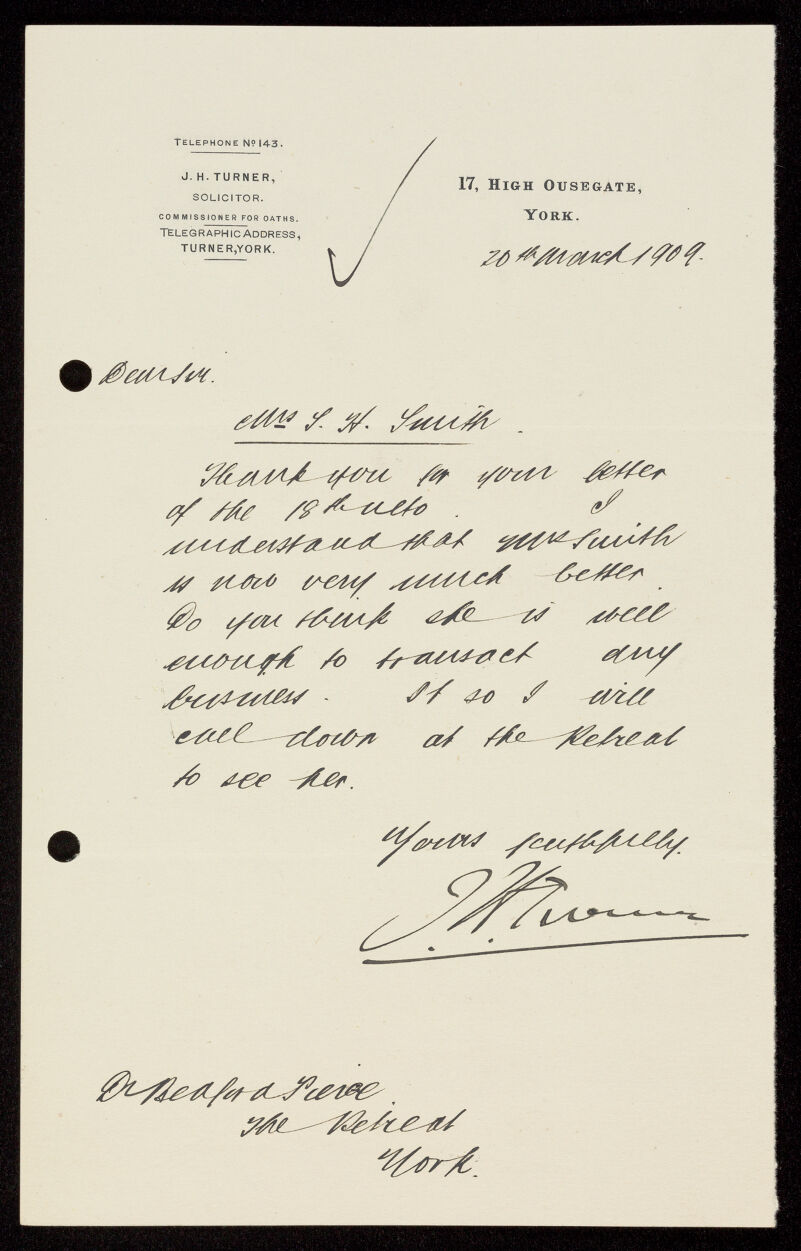 TELEPHONE Nº 143.
J. H. TURNER,
SOLICITOR.
COMMISSIONER FOR OATHS.
TELEGRAPHIC ADDRESS,
TURNER, YORK.
17, HIGH OUSEGATE,
YORK.
20th March 1909.
Dear Sir.
Mrs S. H. Smith.
Thank you for your letter
of the 18th ulto. I
understand that Mrs Smith
is now very much better.
Do you think she is well
enough to transact any
business. If so I will
call down at the Retreat
to see her.
Yours faithfully.
J. H. Turner
Dr Bedford Pierce
The Retreat
York.